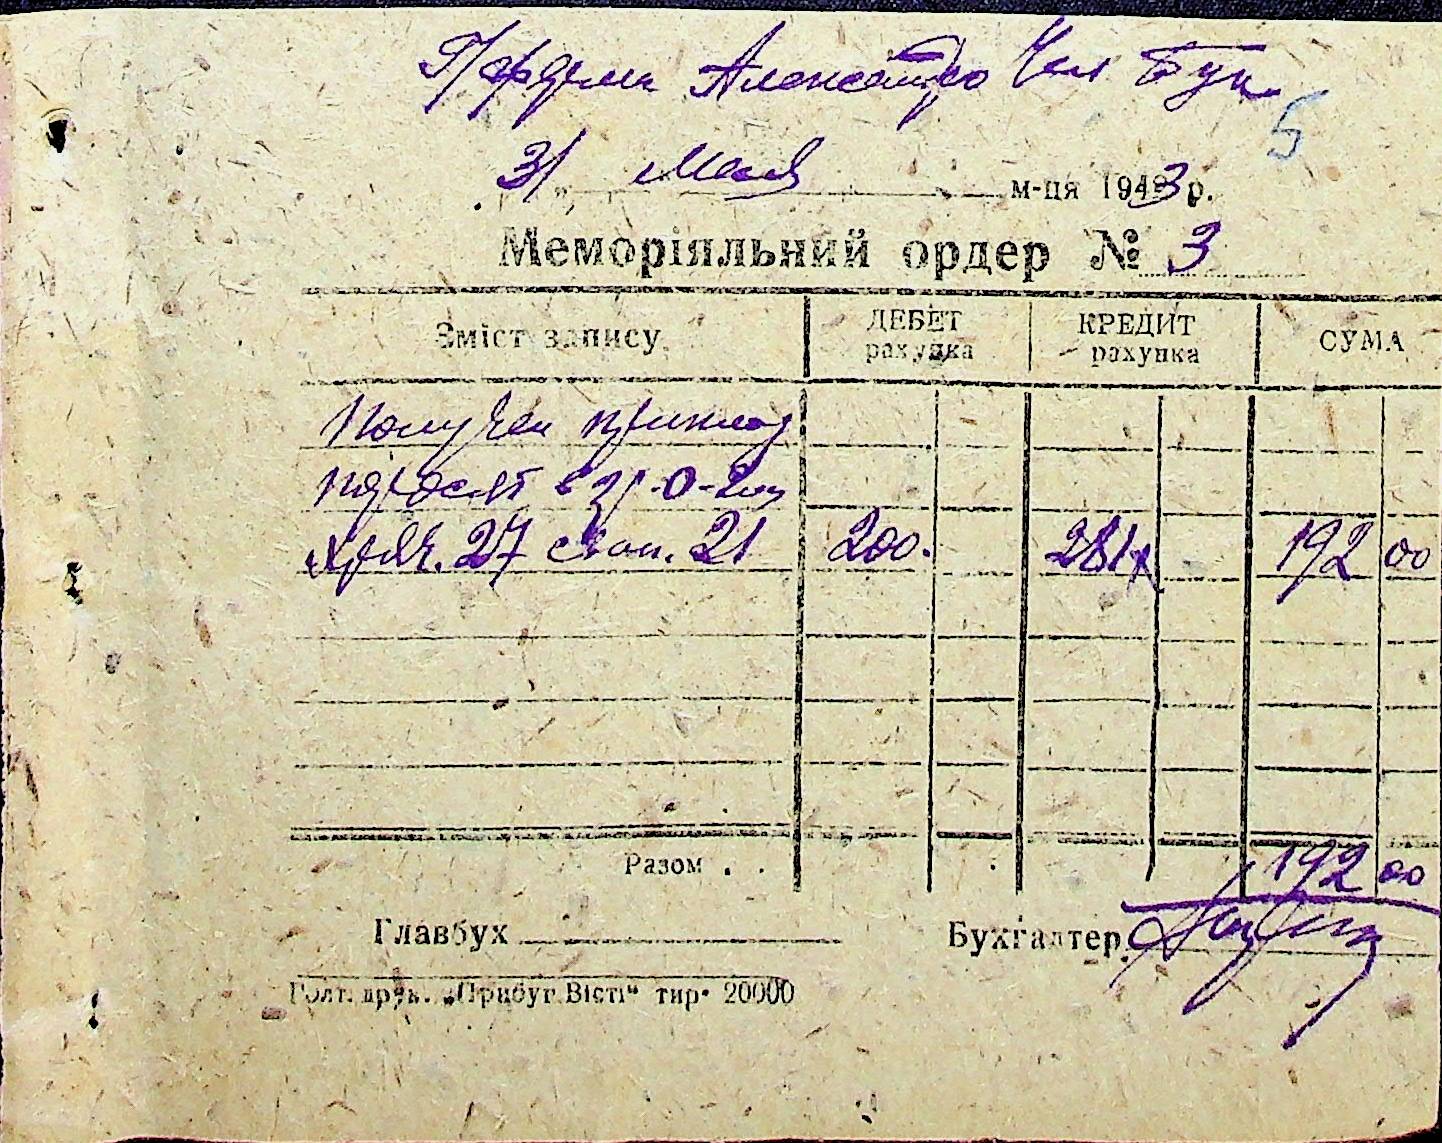 Александро
5
31 " Мая м-ця 1943 р.
Меморіяльний ордер № 3
Зміст запису ДЕБЕТ рахунка КРЕДИТ рахунка СУМА
Получен приплод
поросят в
хряч. 27 свин. 21 200. 281 192 00
Разом . . 192 00
Главбух Бухгалтер
Голт. друк. „Прибуг. Вісті“ тир. 20000